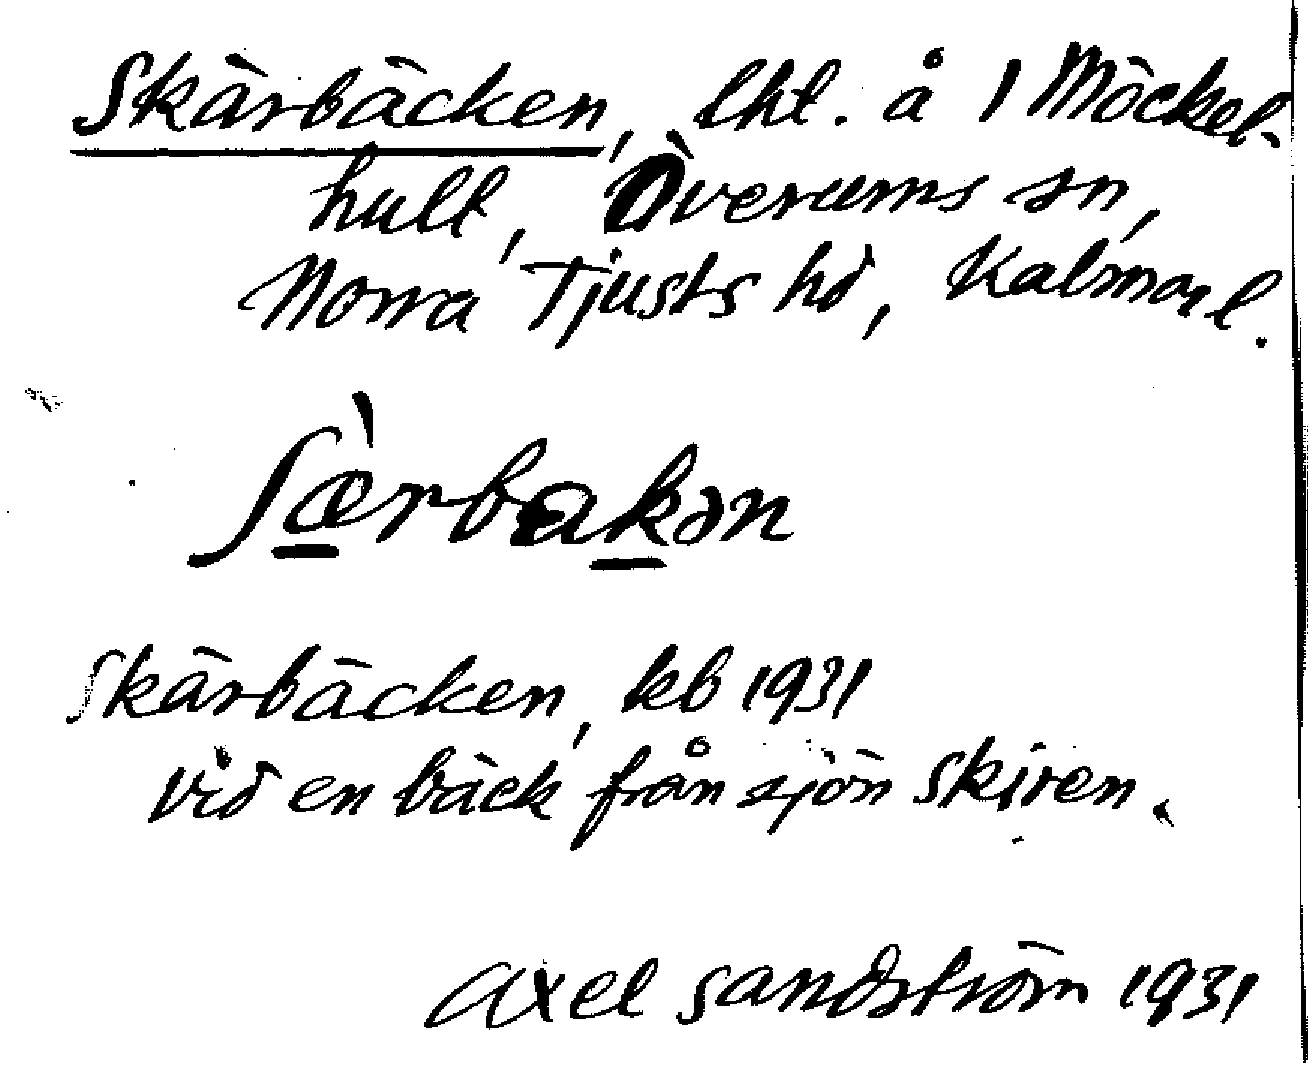 Skärbäcken, lht. å 1 Möckel-
hult, Överums sn,
Norra Tjusts hd, Kalmar l.
ʃæ̀rbakən
Skärbäcken, kb 1931
vid en bäck från sjön Skiren.
Axel Sandström 1931